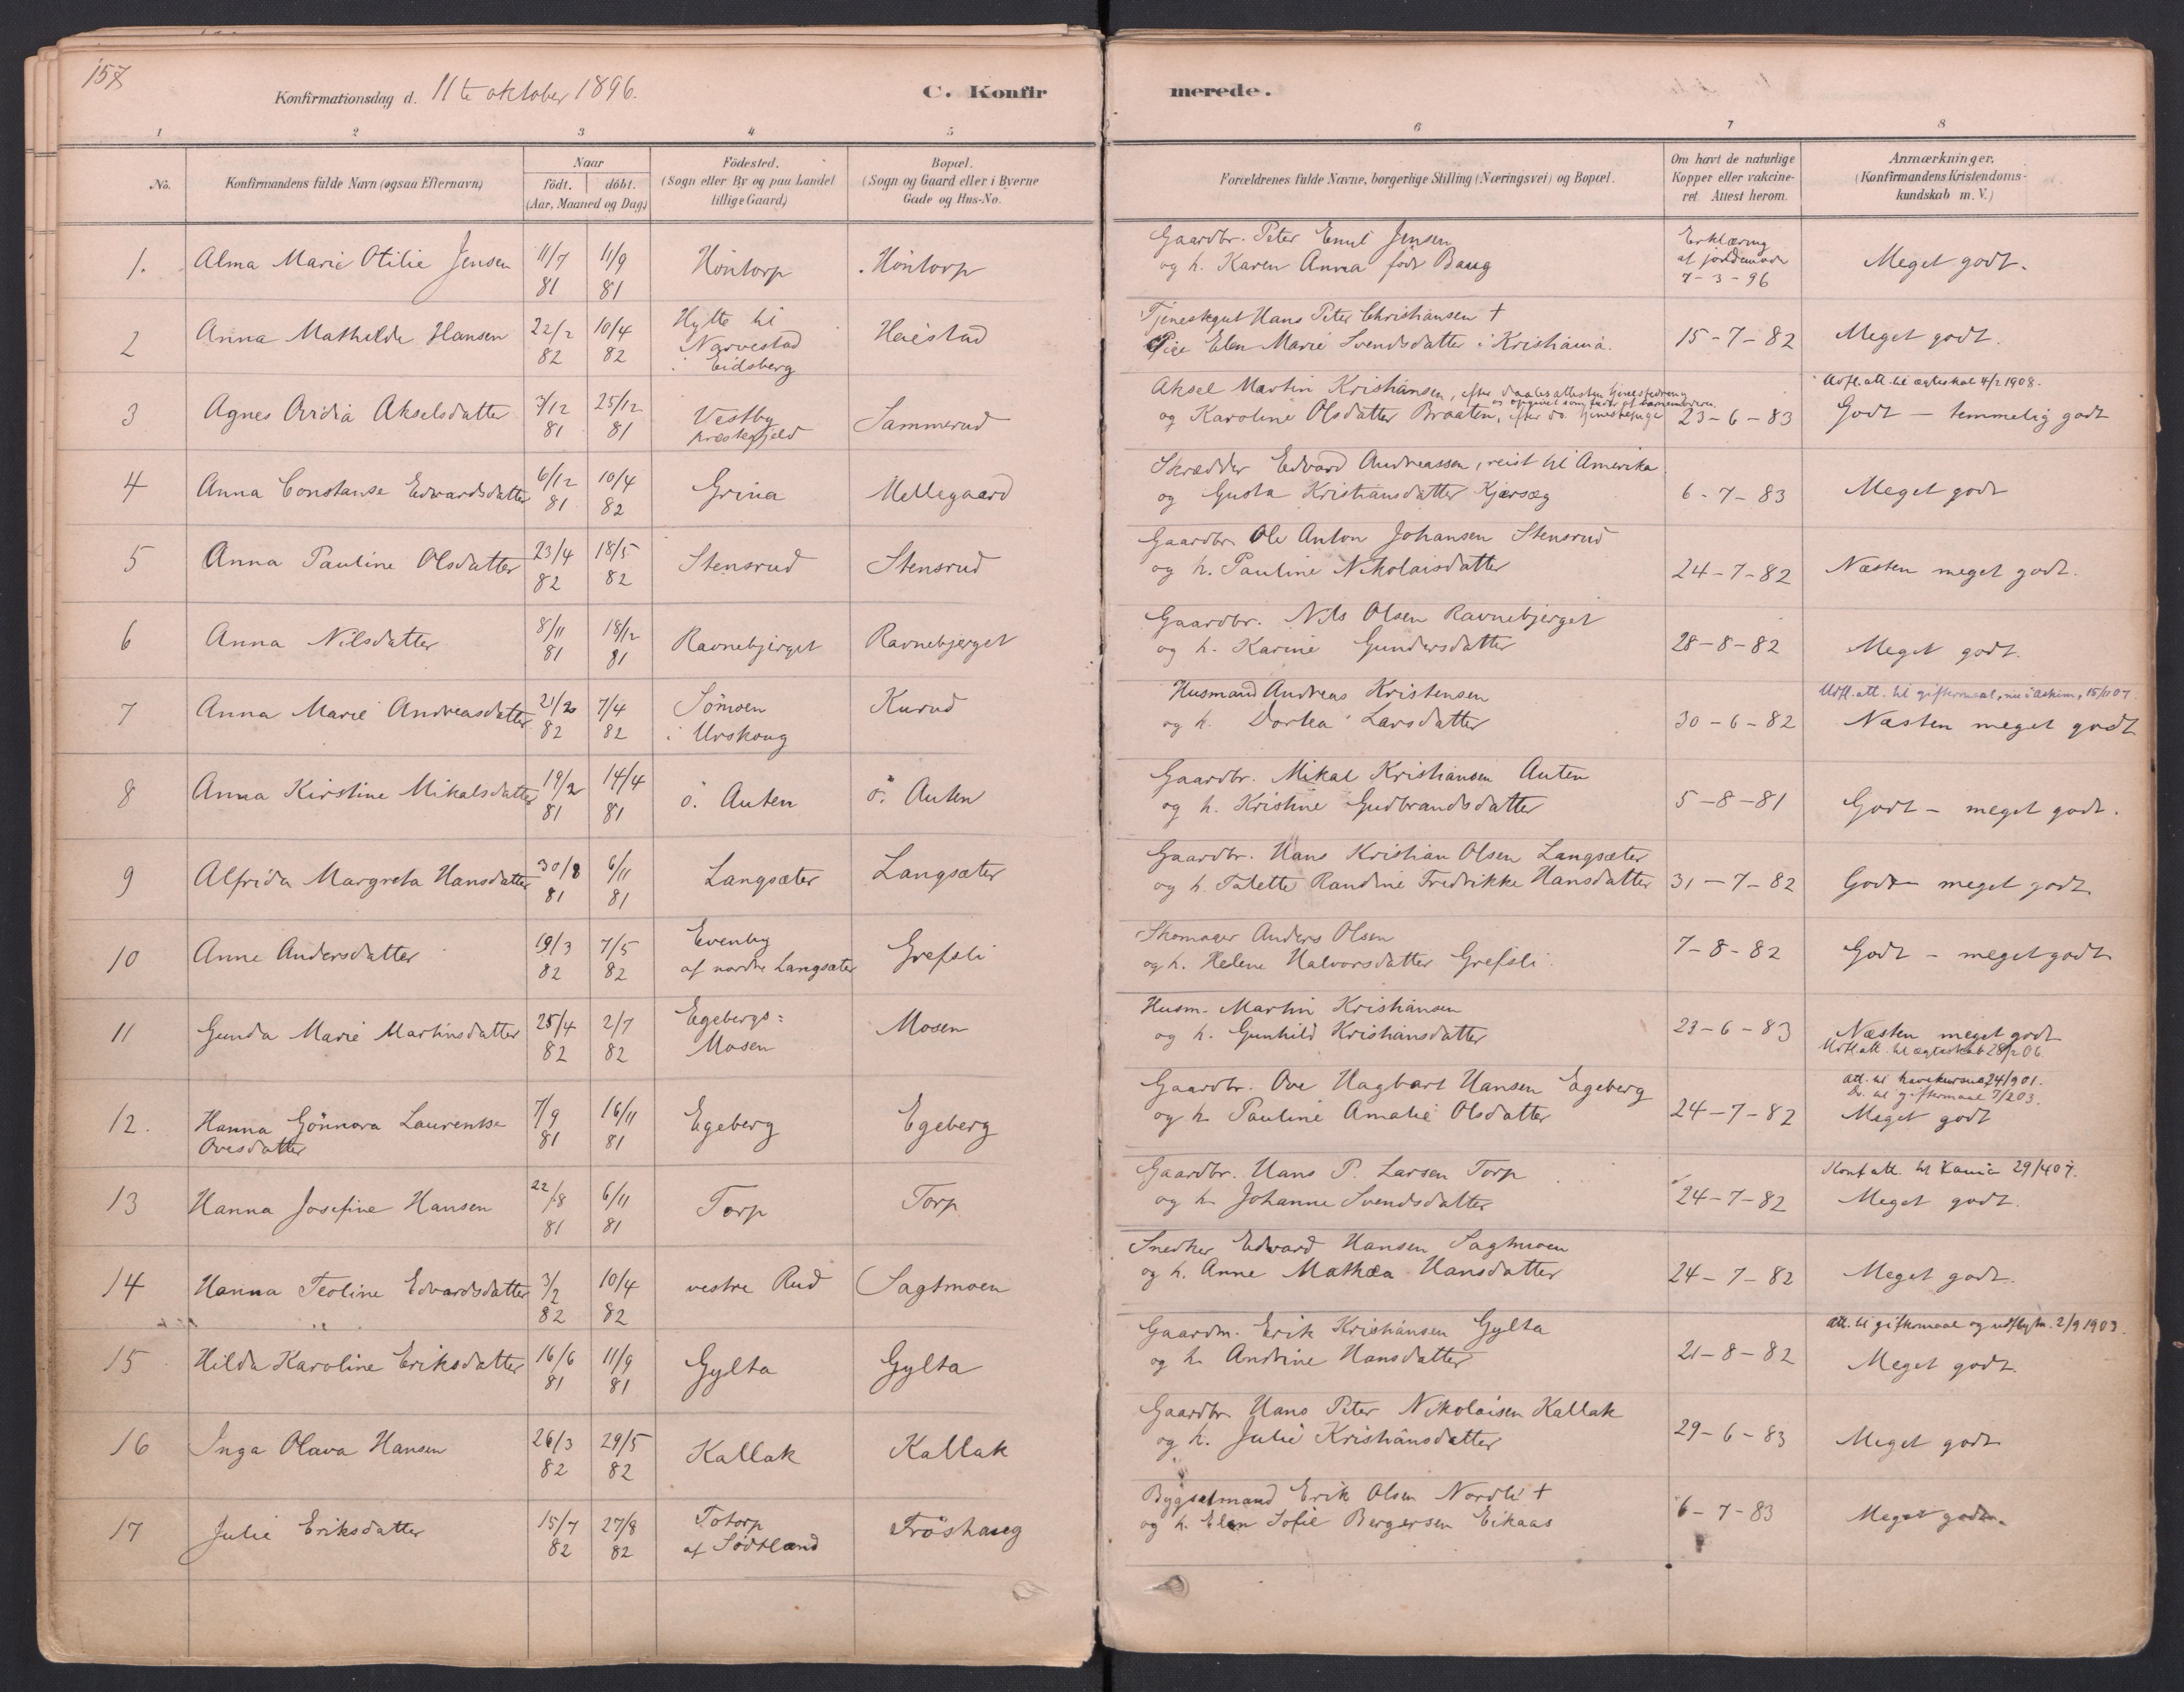 157
Konfirmationsdag d. 11te oktober 1896.
C. Konfirmerede.
1 2 3 4 5 6 7 8
No.
Konfirmandens fulde Navn (ogsaa Efternavn)
Naar
födt. döbt.
(Aar, Maaned og Dag.)
Födested.
(Sogn eller By og paa Landet
tillige Gaard)
Bopæl.
(Sogn og Gaard eller i Byerne
Gade og Hus-No.
Forældrenes fulde Navne, borgerlige Stilling (Næringsvei) og Bopæl.
Om havt de naturlige
Kopper eller vakcine-
ret. Attest herom.
Anmærkninger.
(Konfirmandens Kristendoms-
kundskab m. V.)
1. Alma Marie Otilie Jensen 11/7 81 11/9 81 Höntorp Höntorp
Gaardbr. Peter Emil Jensen
og h. Karen Anna født Baug
Erklæring
af jordemoder
7-3-96
Meget godt.
2 Anna Mathilde Hansen 22/2 82 10/4 82
Hytte til
Narvestad
i Eidsberg
Haiestad
Tjenestegut Hans Peter Christiansen +
Pige Elen Marie Svendsdatter i Kristiania.
15-7-82 Meget godt.
3 Agnes Ovidia Akselsdatter 3/12 81 25/12 81
Vestby
præstegjeld
Sammerud
Aksel Martin Kristiansen, efter daabsattesten
og Karoline Olsdatter Braaten, efter do. tjenestepige
23-6-83
Udfl. att. til ægteskab 4/2 1908.
Godt - temmelig godt
4 Anna Constanse Edvardsdatter 6/12 81 10/4 82 Grina Mellegaard
Skrædder Edvard Andreassen, reist til Amerika
og Gusta Kristiansdatter Kjærsæg
6-7-83 Meget godt
5 Anna Pauline Olsdatter 23/4 82 18/5 82 Stensrud Stensrud
Gaardbr. Ole Anton Johansen Stensrud
og h. Pauline Nikolaisdatter
24-7-82 Næsten meget godt.
6 Anna Nilsdatter 8/11 81 18/12 81 Ravnebjerget Ravnebjerget
Gaardbr. Nils Olsen Ravnebjerget
og h. Karine Gundersdatter
28-8-82 Meget godt.
7 Anna Marie Andreasdatter 21/2 82 7/4 82
Sömoen
i Urskoug
Kurud
Husmand Andreas Kristensen
og h. Dortea Larsdatter
30-6-82
Udfl. att. til giftermaal, nu i Askim, 15/1 07.
Næsten meget godt
8 Anna Kirstine Mikalsdatter 19/2 81 14/4 81 ö. Auten ö. Auten
Gaardbr. Mikal Kristiansen Auten
og h. Kristine Gudbrandsdatter
5-8-81 Godt - meget godt.
9 Alfrida Margreta Hansdatter 30/8 81 6/11 81 Langsæter Langsæter
Gaardbr. Hans Kristian Olsen Langsæter
og h. Talette Randine Fredrikke Hansdatter
31-7-82 Godt - meget godt
10 Anne Andersdatter 19/3 82 7/5 82
Evenby
af nordre Langsæter
Grefsli
Skomager Anders Olsen
og h. Helene Halvorsdatter Grefsli.
7-8-82 Godt - meget godt
11 Gunda Marie Martinsdatter 25/4 82 2/7 82
Egebergs=
Mosen
Mosen
Husm. Martin Kristiansen
og h. Gunhild Kristiansdatter
23-6-83 Næsten meget godt
Udfl att. til ægteskab 28/2 06.
12. Hanna Gönnora Laurentse
Ovesdatter
7/9 81 16/11 81 Egeberg Egeberg
Gaardbr. Ove Hagbart Hansen Egeberg
og h. Pauline Amalie Olsdatter
24-7-82
att. til havekursus 24/9 01.
Do. til giftermaal 7/2 03.
Meget godt
13 Hanna Josefine Hansen 22/8 81 6/11 81 Torp Torp
Gaardbr. Hans P. Larsen Torp
og h. Johanne Svendsdatter
24-7-82
Konf att. til Xania 29/4 07.
Meget godt.
14 Hanna Teoline Edvardsdatter 3/2 82 10/4 82 vestre Rud Sagtmoen
Snedker Edvard Hansen Sagtmoen
og h. Anne Mathea Hansdatter
24-7-82 Meget godt.
15 Hilda Karoline Eriksdatter 16/6 81 11/9 81 Gylta Gylta
Gaardm. Erik Kristiansen Gylta
og h. Andrine Hansdatter
21-8-82
Att. til giftermaal og udflytn. 2/9 1903.
Meget godt.
16 Inga Olava Hansen 26/3 82 29/5 82 Kallak Kallak
Gaardbr. Hans Peter Nikolaisen Kallak
og h. Julie Kristiansdatter
29-6-83 Meget godt
17 Julie Eriksdatter 15/7 82 27/8 82
Totorp
af Södtland
Fröshaug
Bygselmand Erik Olsen Nordli +
og h. Elen Sofie Bergersen Eikaas
6-7-83 Meget godt.